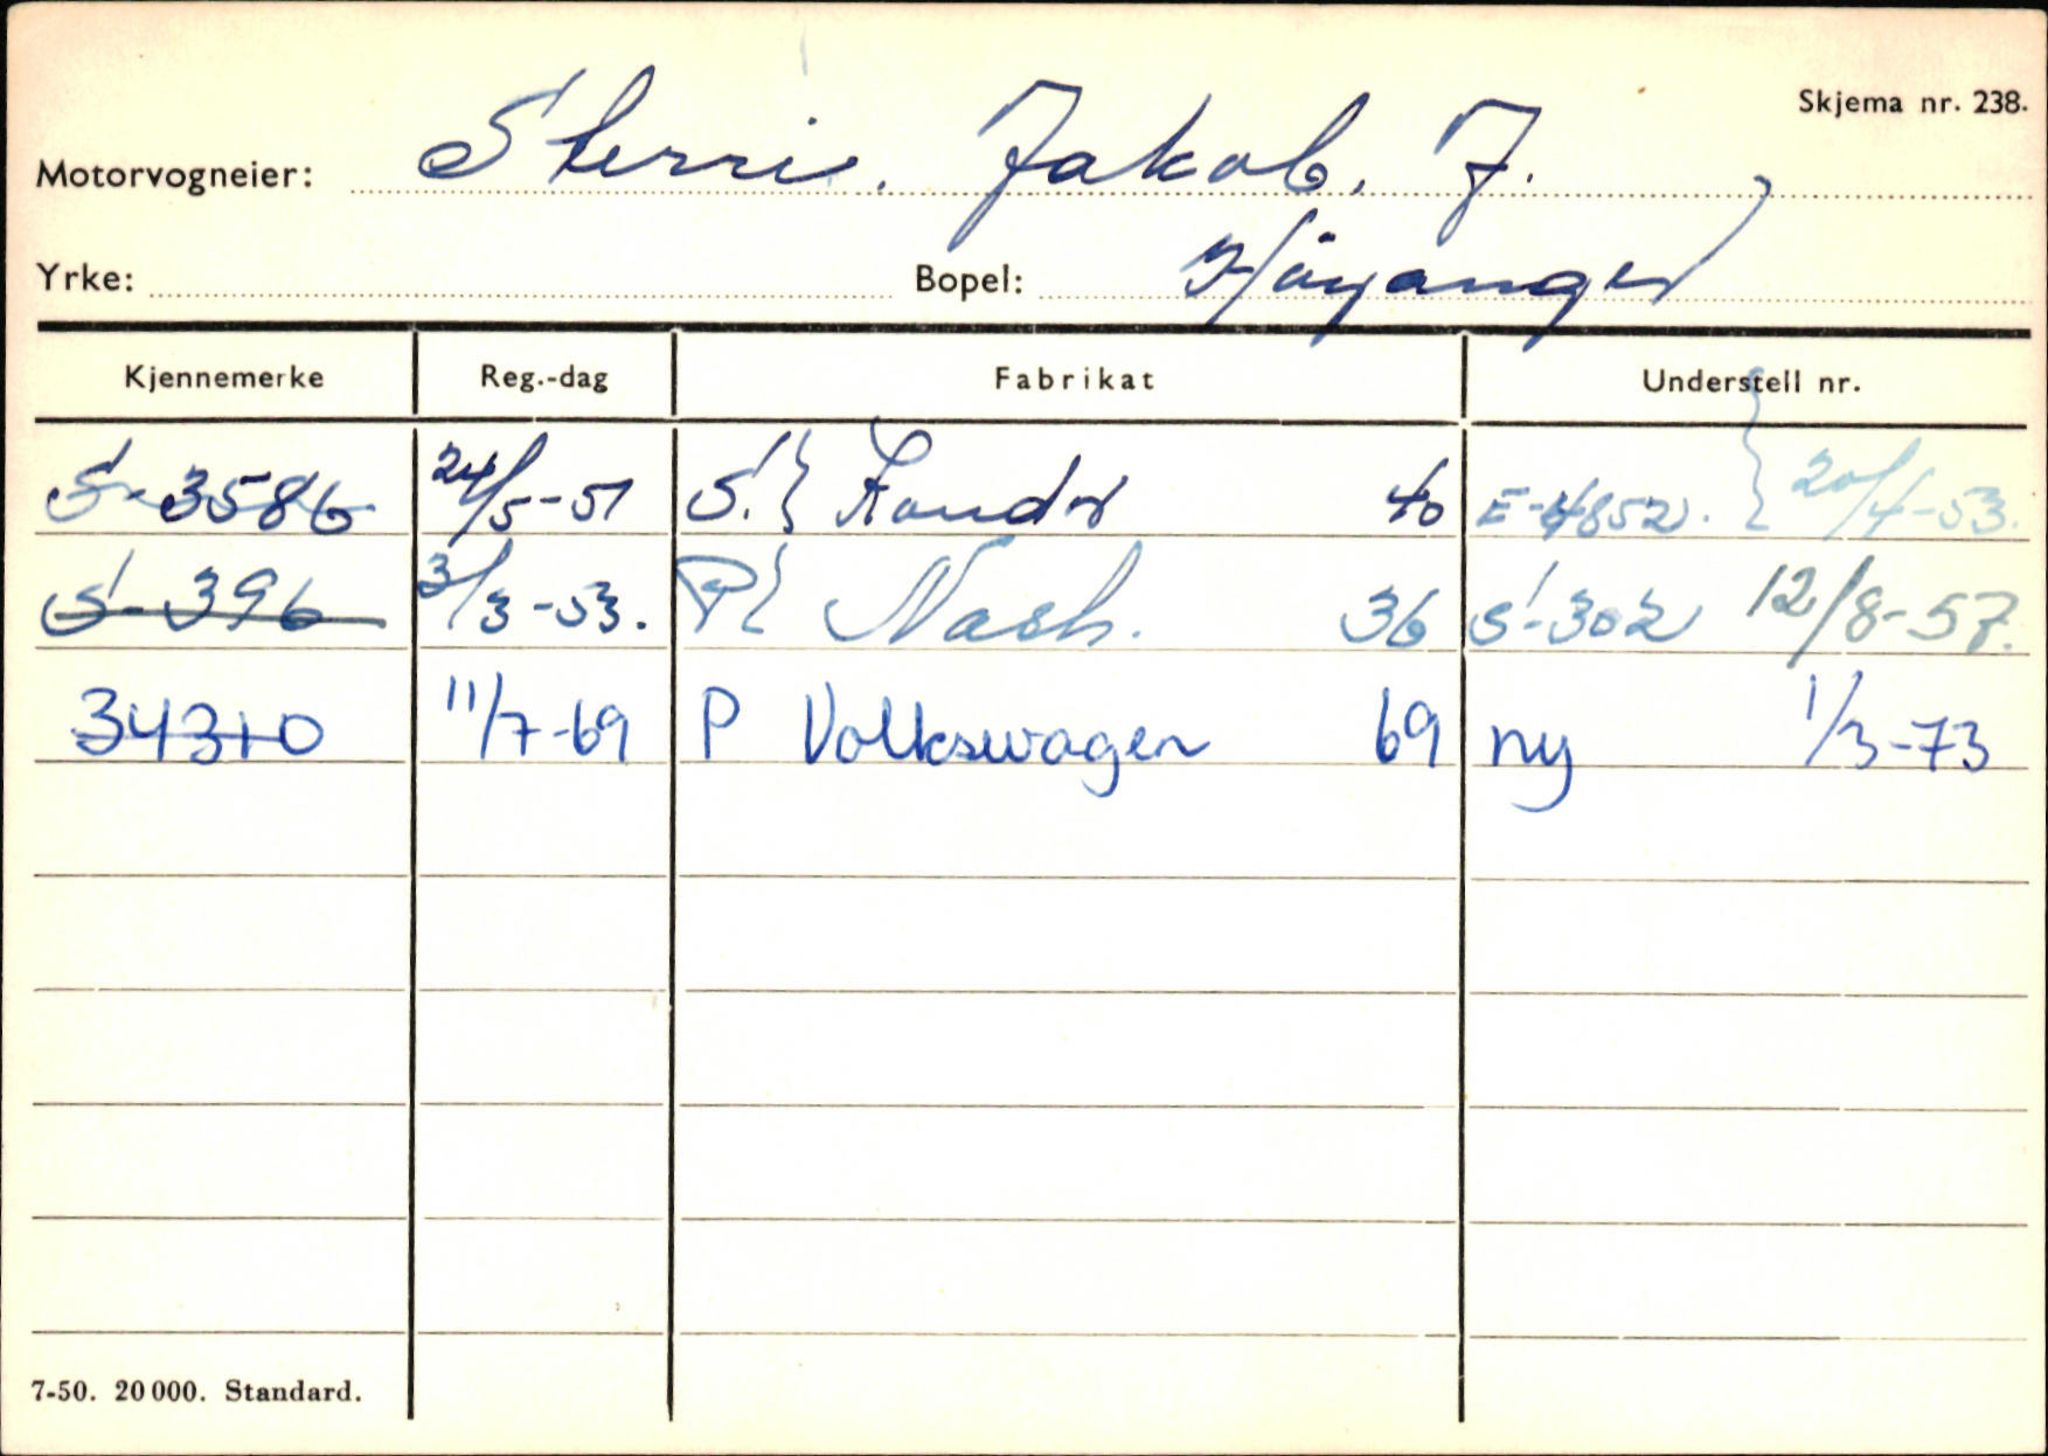 Skjema nr. 238.
Motorvogneier: Sterri. Jakob. J.
Yrke: Bopel: Höyanger
Kjennemerke Reg.-dag Fabrikat Understell nr.
S-3586 24/5-51 S. 40 E-4852. 20/4-53.
S-396 3/3-53. P Nash. 36 S-302 12/8-57.
34310 11/7-69 P Volkswagen 69 ny 1/3-73
7-50. 20000. Standard.